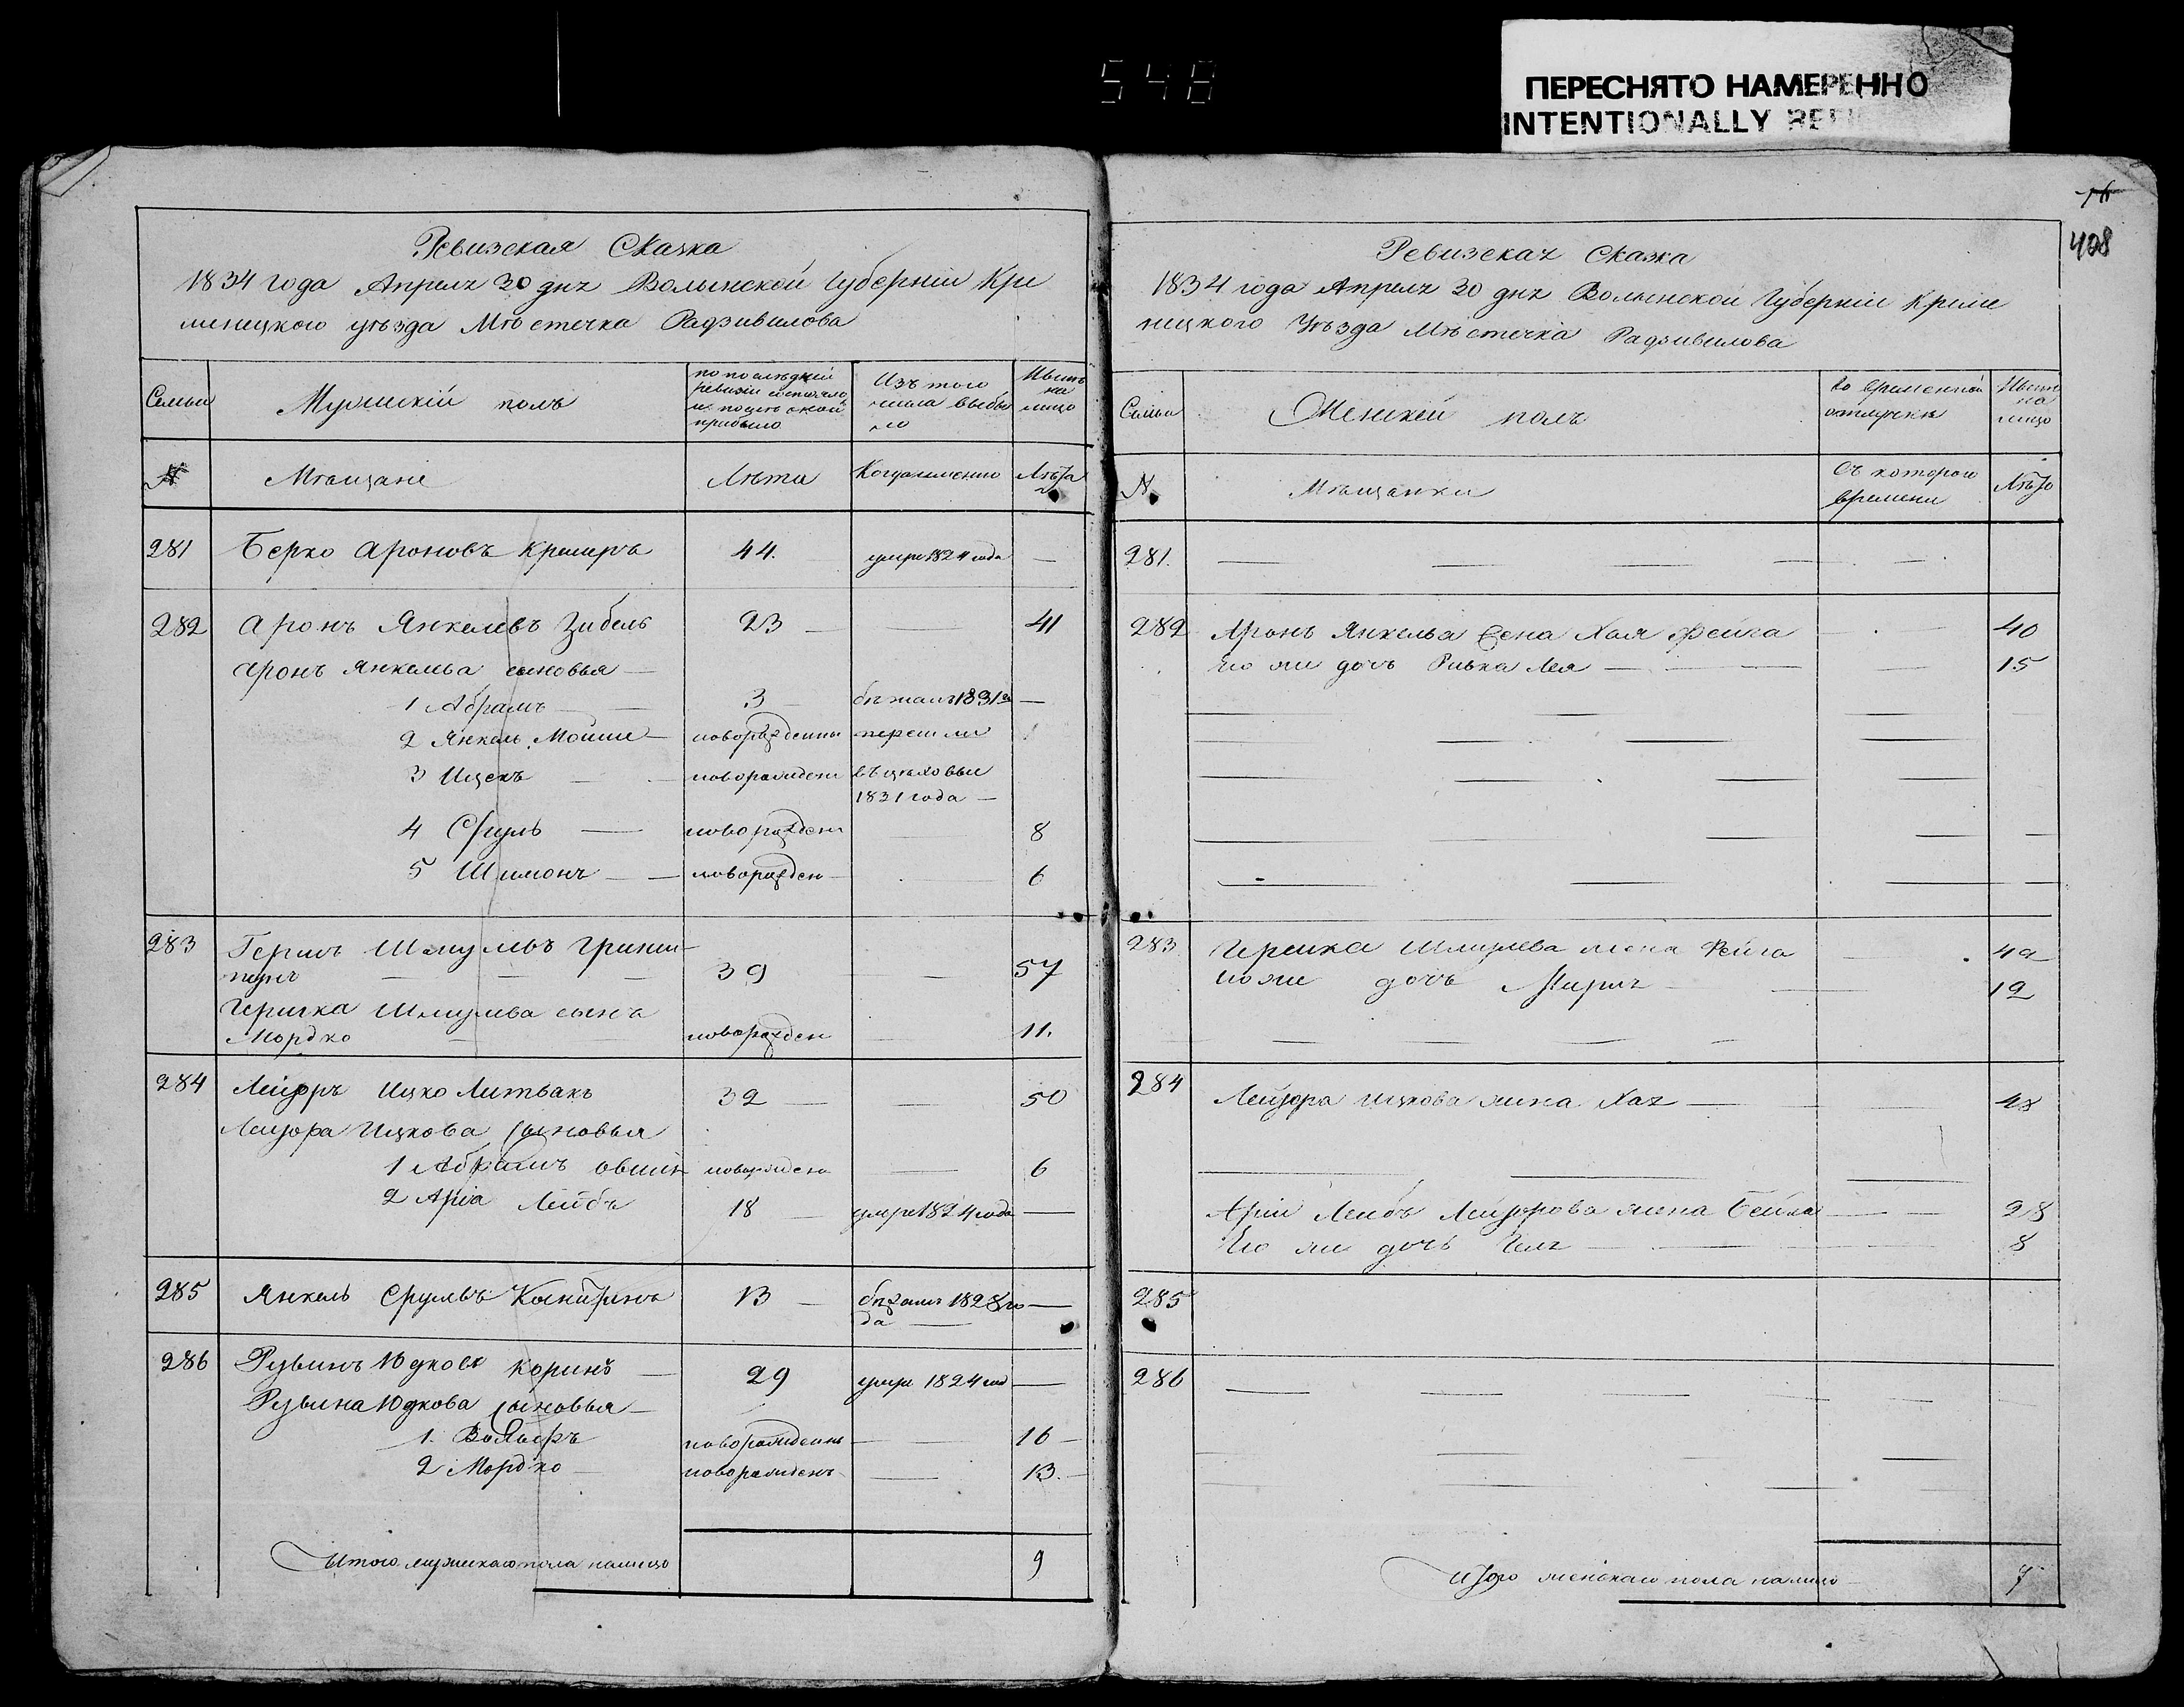 548
ПЕРЕСНЯТО НАМЕРЕННО
INTENTIONALLY
76
408
Ревизская Сказка
1834 года Апреля 30 дня Волынской Губерніи Кре
менецкого уѣзда Мѣстечка Радзивилова
Семьи
Мужескій полъ
по послѣдней
ревизіи состояло
и послѣ оной
прибыло
Изъ того
числа выбы
ло
Нынѣ
на
лицо
№
Мѣщане
Лѣта
Когда именно
Лѣта
281 Берко Ароновъ 44. умре 1824 года —
282 Аронъ Янкелевъ Зибель 23 — 41
Аронъ Янкельва сыновья —
1 Абрамъ — 3 — бѣжалъ 1831 —
2 Янкель Мошке — новорожденны перешли
3 Ицекъ — новорожден въ цеховые
1831 года —
4 Сруль — новорожден 8
5 Шимонъ — новорожден — 6
283 Гершъ Шмулевъ Грин
39 — 57
Гершка Шмулева сынъ
Мордко — новорожден — 11.
284 Лейзоръ Ицко Литвакъ 32 — — 50
Лейзора Ицкова сыновья
1 Абрамъ новорожден — 6
2 Аріа Лейбъ 18 — умре 1824 года —
285 Янкель Срулевъ 13 — бѣжалъ 1828 го —
да —
286 Рувинъ Юдковъ Коринъ — 29 умре 1824 год —
Рувина Юдкова сыновья —
1. 16 — новорожденны —
2 Мордко — новорожденъ — 13. —
Итого мужескаго пола налицо 9
Ревизская Сказка
1834 года Апреля 30 дня Волынской Губерніи Креме
ницкого Уѣзда Мѣстечка Радзивилова
Семьи
Женскій полъ
Во временной
отлучкѣ
Нынѣ
на
лицо
№
Мѣщанки
Съ которого
времени
Лѣта
281. — — — — —
282 Аронъ Янкельва жена Хая Фейга — 40
Его же дочь Ривка Лея — — — 15
283 Гершка Шмулева жена Фейга — 49
Его же дочь Мирля — — 12
284 Лейзора Ицкова жена Хая — — 48
Аріи Лейбъ Лейзорова жена Бейла — — 28
Его же дочь — — 8
285
286 — — — — —
Итого женскаго пола налицо — 7